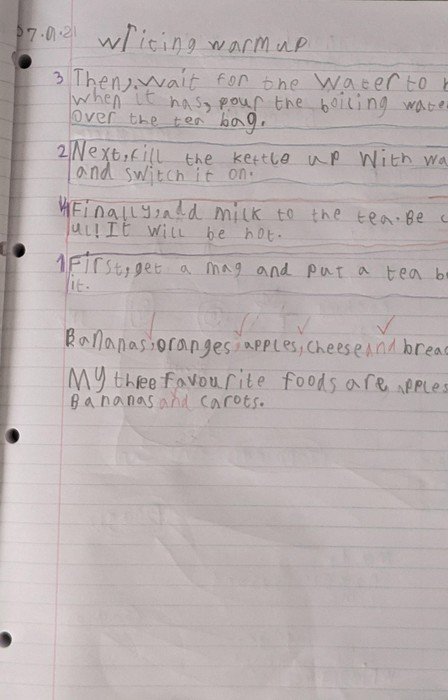 7.9.21
writing warmup
3 Then, wait for the water to
when it has, pour the boiling wate
over the tea bag.
2 Next, fill the kettle up with wa
and switch it on.
4 Finally, add milk to the tea. Be c
ul! It will be hot.
1 First, get a mag and put a tea b
it.
Bananas, oranges, apples, cheese and brea
My three favourite foods are, apples
Bananas and carots.